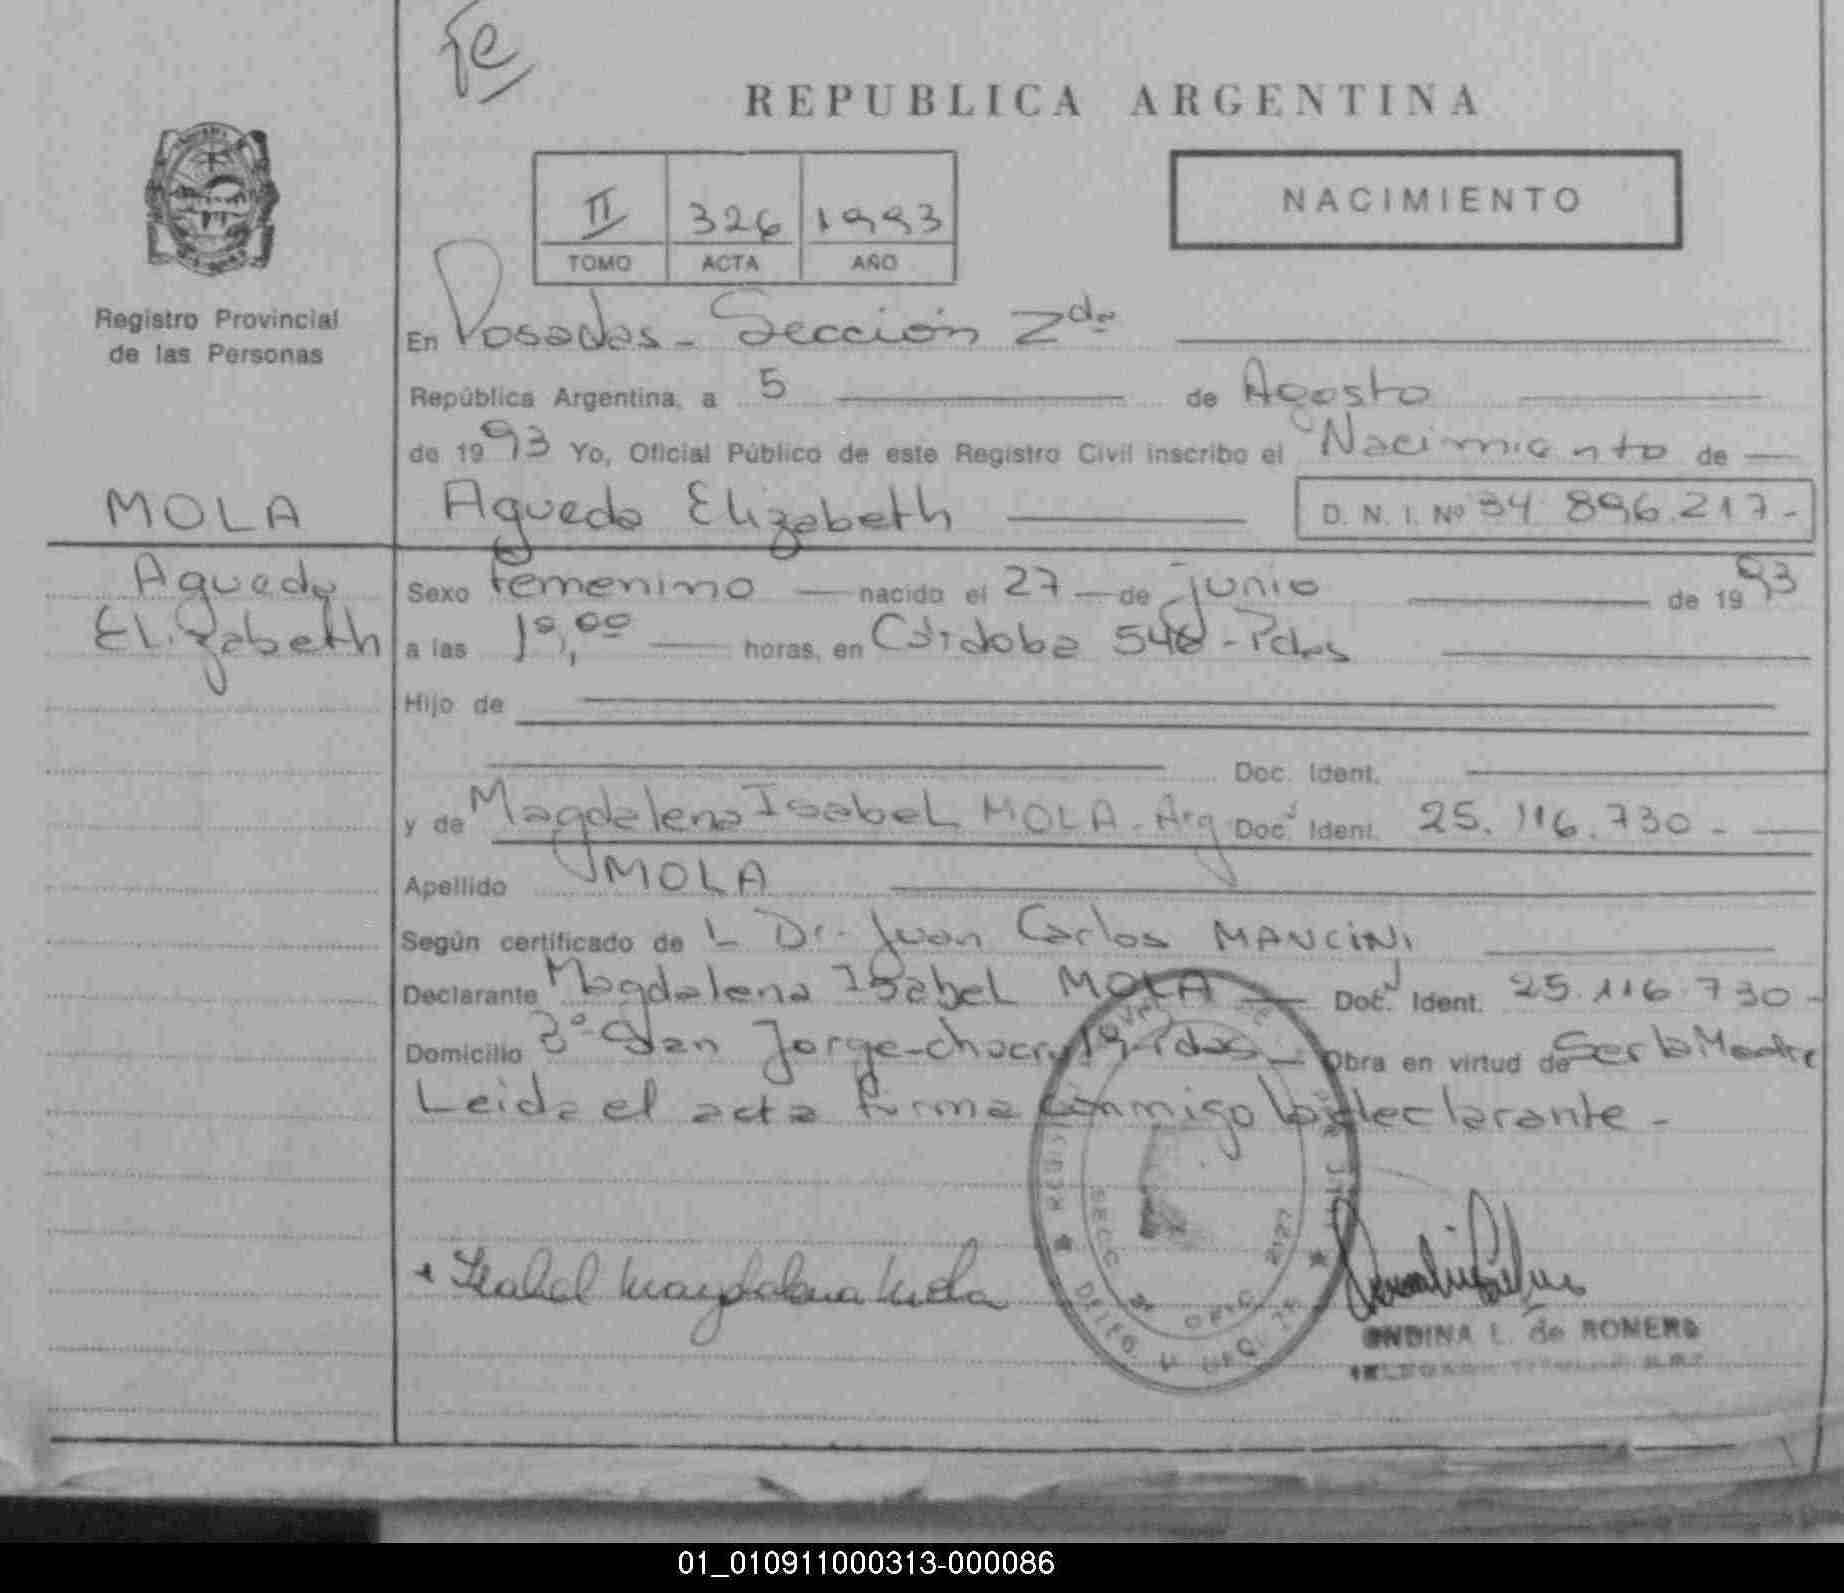 fe
REPUBLICA ARGENTINA
NACIMIENTO
II 326 1993
TOMO ACTA AÑO
Registro Provincial
de las Personas
En Posadas - Sección 2da
República Argentina, a 5 de Agosto
de 1993 Yo, Oficial Público de este Registro Civil inscribo el Nacimiento de
MOLA Agueda Elizabeth D. N. I. Nº 34 896.217-
Agueda
Elizabeth
Sexo femenino nacido el 27 de junio de 1993
a las horas, en Córdoba 546 - Pdas
Hijo de
Doc. Ident.
y de Magdalena Isabel MOLA - Arg Doc. Ident. 25.116.730 -
Apellido MOLA
Según certificado de L Dr. Juan Carlos MANCINI
Declarante Magdalena Isabel MOLA Doc. Ident. 25.116.730 -
Domicilio San Jorge - chacra Pdas - Obra en virtud de Ser la Madre
Leida el acta firma conmigo la declarante -
Isabel Magdalena Mola
ONDINA L. de ROMERO
01_010911000313-000086